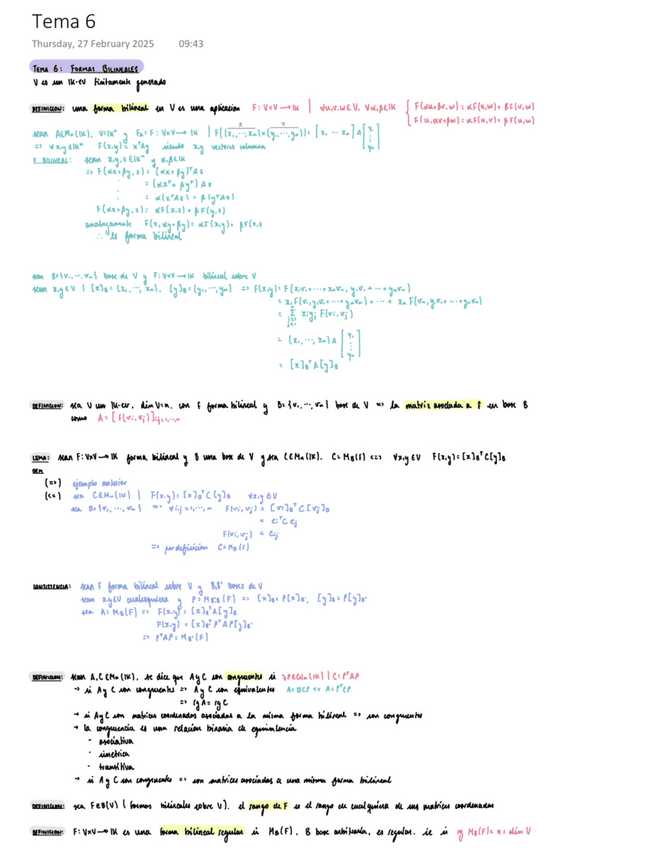 Tema 6
Thursday, 27 February 2025 09:43
TEMA 6: FORMAS BILINEALES
V es un IK-ev finitamente generado
DEFINICION: una forma bilineal en V es una aplicacion F: V×V → IK | ∀u,v,w∈V, ∀α,β∈IK { F(αu+βv,w) = αF(u,w) + βF(v,w)
F(u,αv+βw) = αF(u,v) + βF(u,w)
sean A∈Mn(IK), V=IKⁿ y FA=F: V×V → IK | F((x₁,...,xn)×(y₁,...,yn)) = [x₁ ... xn] A [y₁ ⋮ yn]
=> ∀x,y∈IKⁿ F(x,y) = xᵀAy siendo x,y vectores columna
F BILINEAL: sean x,y,z∈IKⁿ y α,β∈IK
=> F(αx+βy,z) = (αx+βy)ᵀAz
= (αxᵀ+βyᵀ)Az
= α(xᵀAz) + β(yᵀAz)
F(αx+βy,z) = αF(x,z) + βF(y,z)
analogamente F(x,αy+βz) = αF(x,y) + βF(x,z)
∴ es forma bilineal
sea B={v₁,...,vn} base de V y F: V×V → IK bilineal sobre V
sean x,y∈V | [x]B=(x₁,...,xn), [y]B=(y₁,...,yn) => F(x,y) = F(x₁v₁+...+xnvn, y₁v₁+...+ynvn)
= x₁F(v₁,y₁v₁+...+ynvn) + ... + xnF(vn,y₁v₁+...+ynvn)
= Σ xiyj F(vi,vj)
= (x₁,...,xn) A [y₁ ⋮ yn]
= [x]BᵀA[y]B
DEFINICION: sea V un IK-ev, dimV=n, con F forma bilineal y B={v₁,...,vn} base de V => la matriz asociada a F en base B
como A=[F(vi,vj)]i,j=1,...,n
LEMA: sean F: V×V → IK forma bilineal y B una base de V y sea C∈Mn(IK). C=MB(F) <=> ∀x,y∈V F(x,y)=[x]BᵀC[y]B
DEM
(=>) ejemplo anterior
(<=) sea C∈Mn(IK) | F(x,y)=[x]BᵀC[y]B ∀x,y∈V
sea B={v₁,...,vn} => ∀i,j=1,...,n F(vi,vj) = [vi]BᵀC[vj]B
= eiᵀCej
F(vi,vj) = cij
=> por definicion C=MB(F)
CONSISTENCIA: sean F forma bilineal sobre V y B,B' bases de V
sean x,y∈V cualesquiera y P=MB'B(F) => [x]B=P[x]B', [y]B=P[y]B'
sea A=MB(F) => F(x,y) = [x]BᵀA[y]B
F(x,y) = [x]B'ᵀPᵀAP[y]B'
=> PᵀAP=MB'(F)
DEFINICION: sean A,C∈Mn(IK), se dice que A y C son congruentes si ∃P∈GLn(IK) | C=PᵀAP
→ si A y C son congruentes => A y C son equivalentes A=QCP <=> A=PᵀCP
=> rgA=rgC
→ si A y C son matrices coordenadas asociadas a la misma forma bilineal => son congruentes
→ la congruencia es una relacion binaria de equivalencia
- asociativa
- simetrica
- transitiva
→ si A y C son congruentes => son matrices asociadas a una misma forma bilineal
DEFINICION: sea F∈B(V) (formas bilineales sobre V). el rango de F es el rango de cualquiera de sus matrices coordenadas
DEFINICION: F: V×V → IK es una forma bilineal regular si MB(F), B base arbitraria, es regular. ie si rg MB(F)=n=dim V